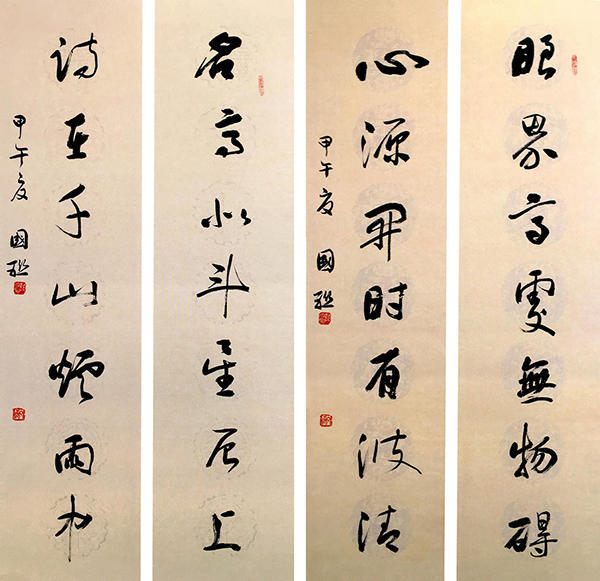 眼界高處無物礙
心源開時有波清
甲午夏 國聯
名高北斗星辰上
詩在千山煙雨中
甲午夏 國聯